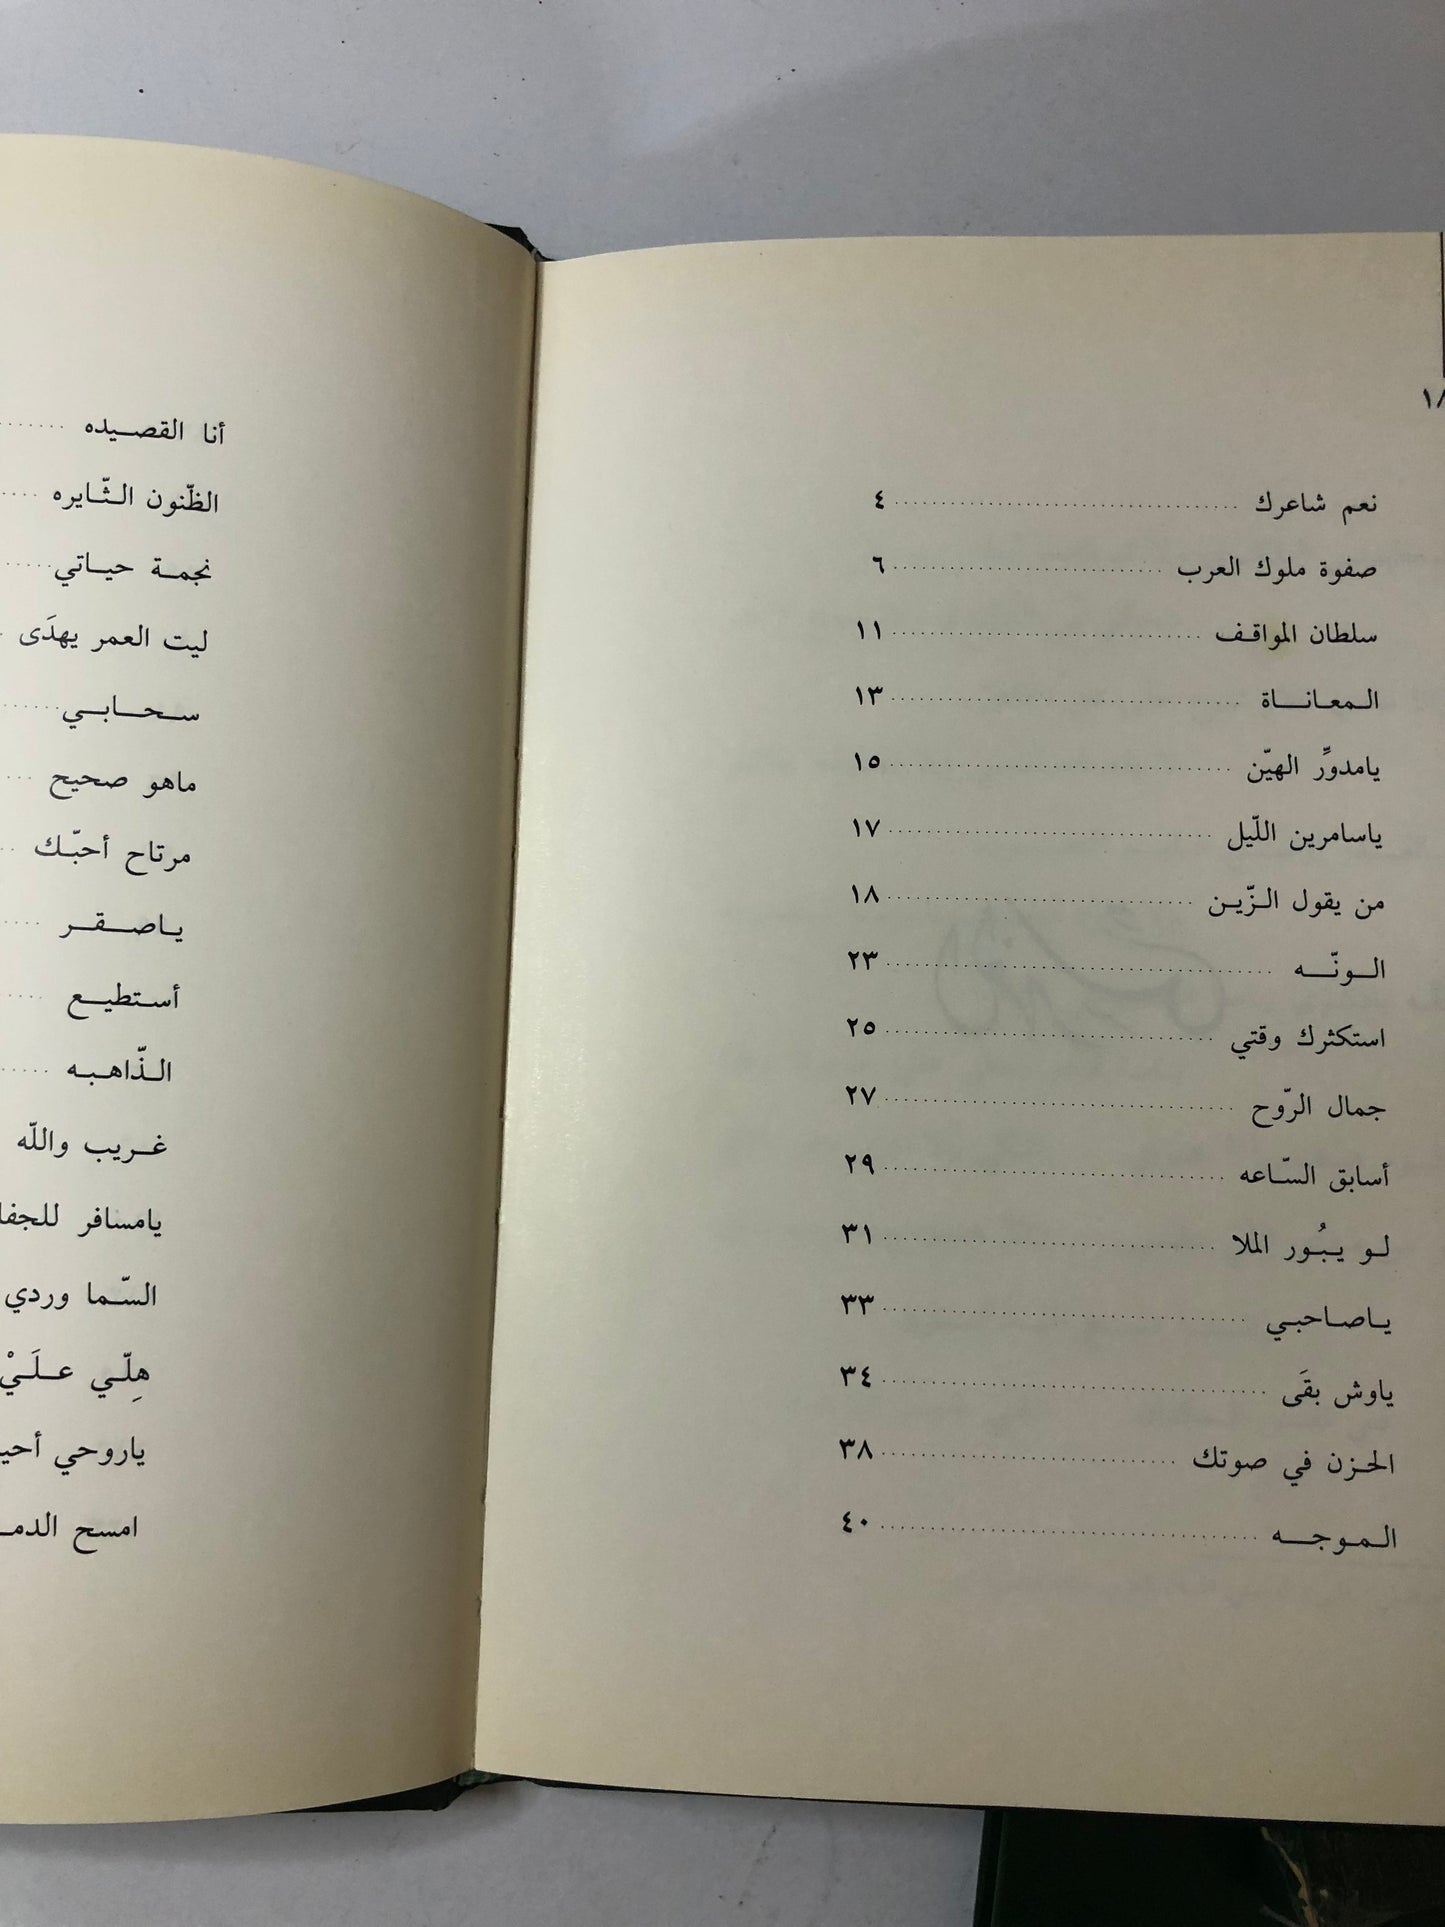 نعم شاعرك ٤
صفوة ملوك العرب ٦
سلطان المواقف ١١
المعاناة ١٣
يامدوِّر الهيّن ١٥
ياسامرين اللّيل ١٧
من يقول الزّين ١٨
الونّه ٢٣
استكثرك وقتي ٢٥
جمال الرّوح ٢٧
أسابق السّاعه ٢٩
لو يبُور الملا ٣١
ياصاحبي ٣٣
ياوش بقَى ٣٤
الحزن في صوتك ٣٨
الموجه ٤٠
أنا القصيده
الظّنون الثّايره
نجمة حياتي
ليت العمر يهدَى
سحابي
ماهو صحيح
مرتاح أحبّك
ياصقر
أستطيع
الذّاهبه
غريب واللّه
يامسافر
السّما وردي
هِلّي علَيْ
ياروحي
امسح